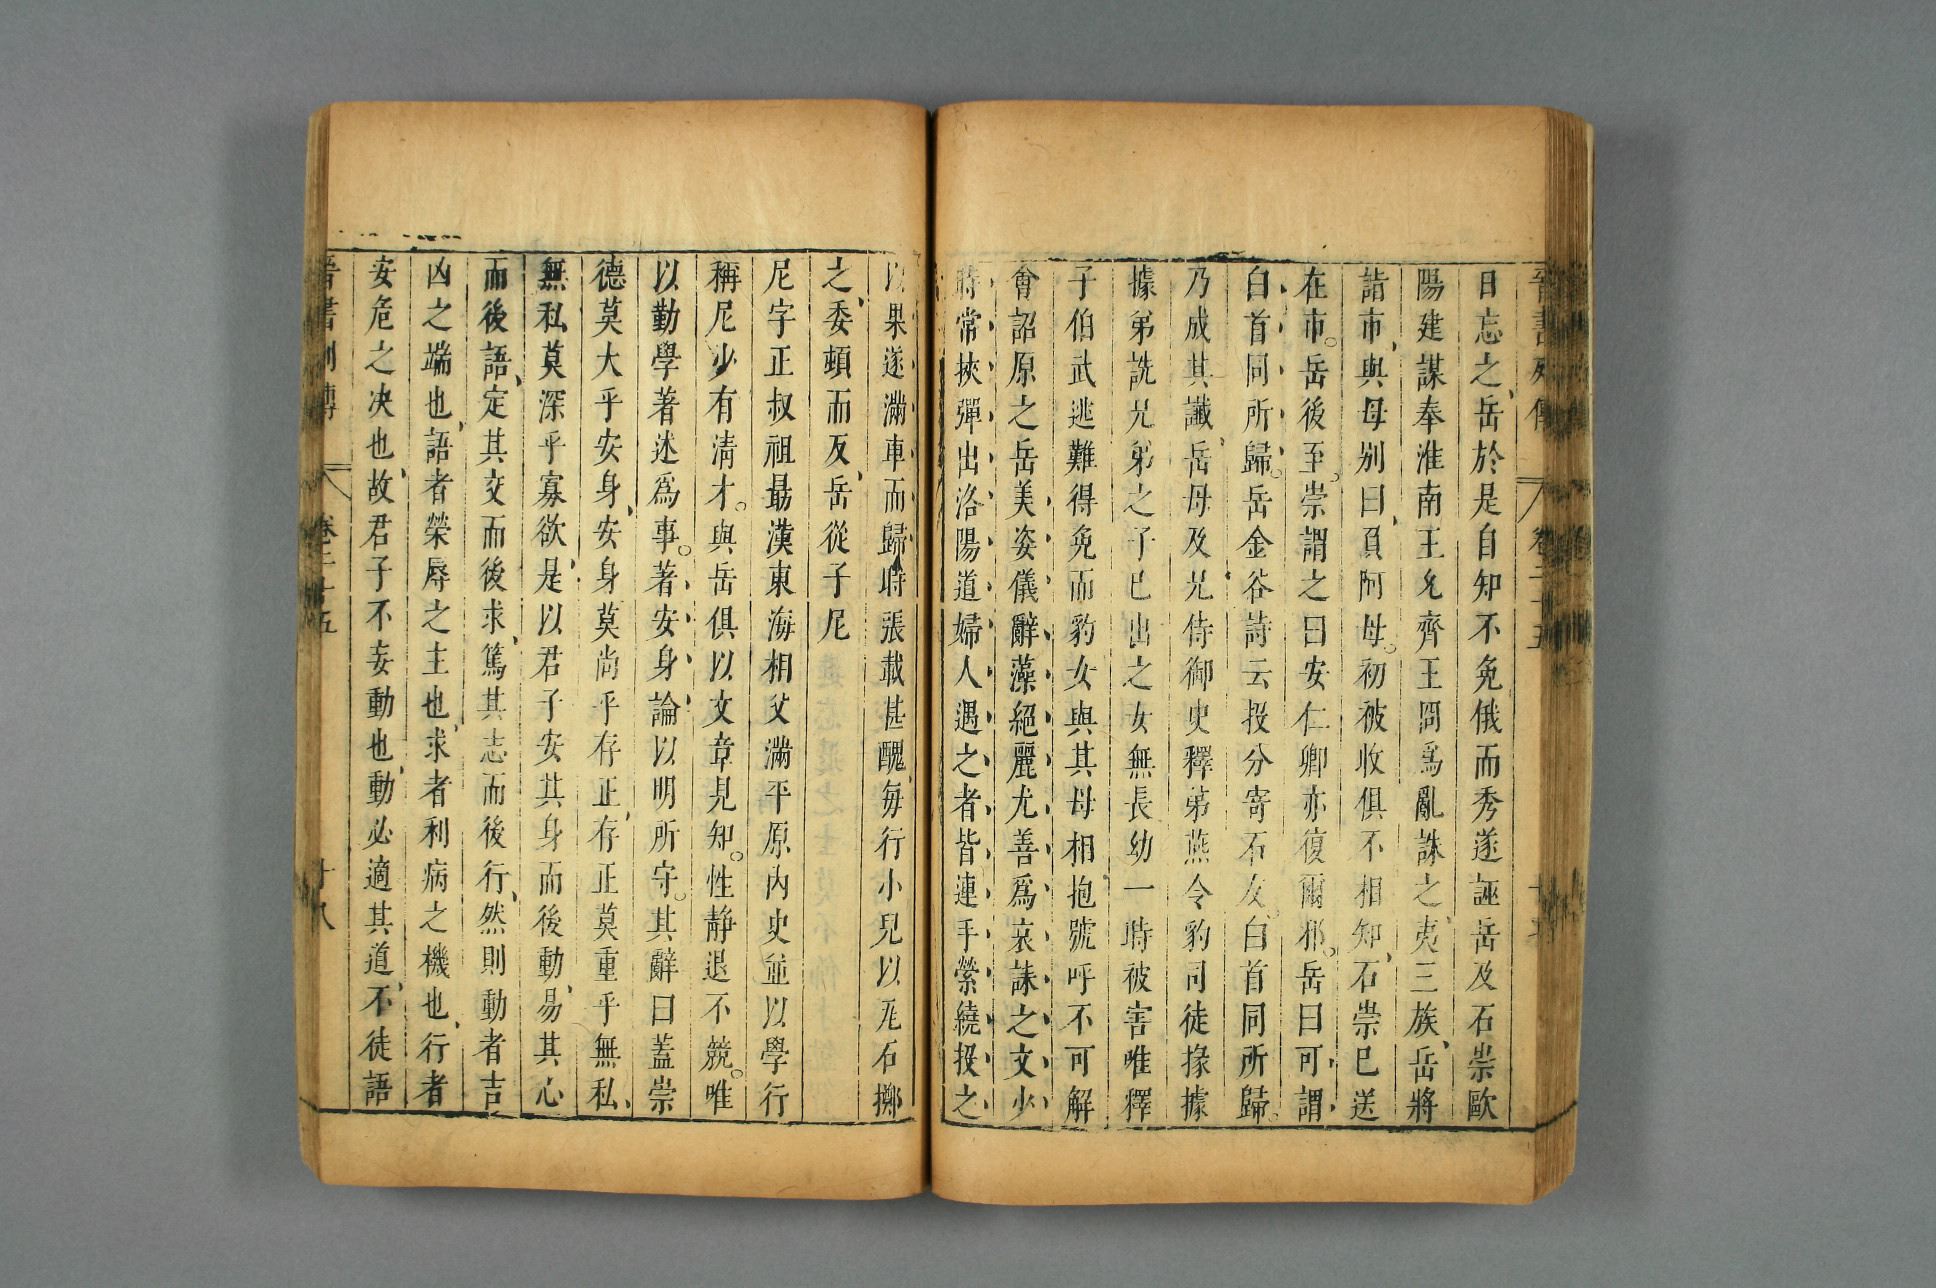 日忘之岳於是自知不免俄而秀遂誣岳及石崇歐
陽建謀奉淮南王允齊王冏爲亂誅之夷三族岳將
詣市與母别曰負阿母初被收俱不相知石崇已送
在市岳後至崇謂之曰安仁卿亦復爾邪岳曰可謂
白首同所歸岳金谷詩云投分寄石友白首同所歸
乃成其讖岳母及兄侍御史釋弟燕令豹司徒掾據
據弟詵兄弟之子已出之女無長幼一時被害唯釋
子伯武逃難得免而豹女與其母相抱號呼不可解
會詔原之岳美姿儀辭藻絕麗尤善爲哀誄之文少
時常挾彈出洛陽道婦人遇之者皆連手縈繞投之
以果遂滿車而歸時張載甚醜每行小兒以瓦石擲
之委頓而反岳從子尼
尼字正叔祖最漢東海相父滿平原内史並以學行
稱尼少有清才與岳俱以文章見知性静退不競唯
以勤學著述爲事著安身論以明所守其辭曰蓋崇
德莫大乎安身安身莫尚乎存正存正莫重乎無私
無私莫深乎寡欲是以君子安其身而後動易其心
而後語定其交而後求篤其志而後行然則動者吉
凶之端也語者榮辱之主也求者利病之機也行者
安危之决也故君子不妄動也動必適其道不徒語
晉書列傳 卷二十五 十八